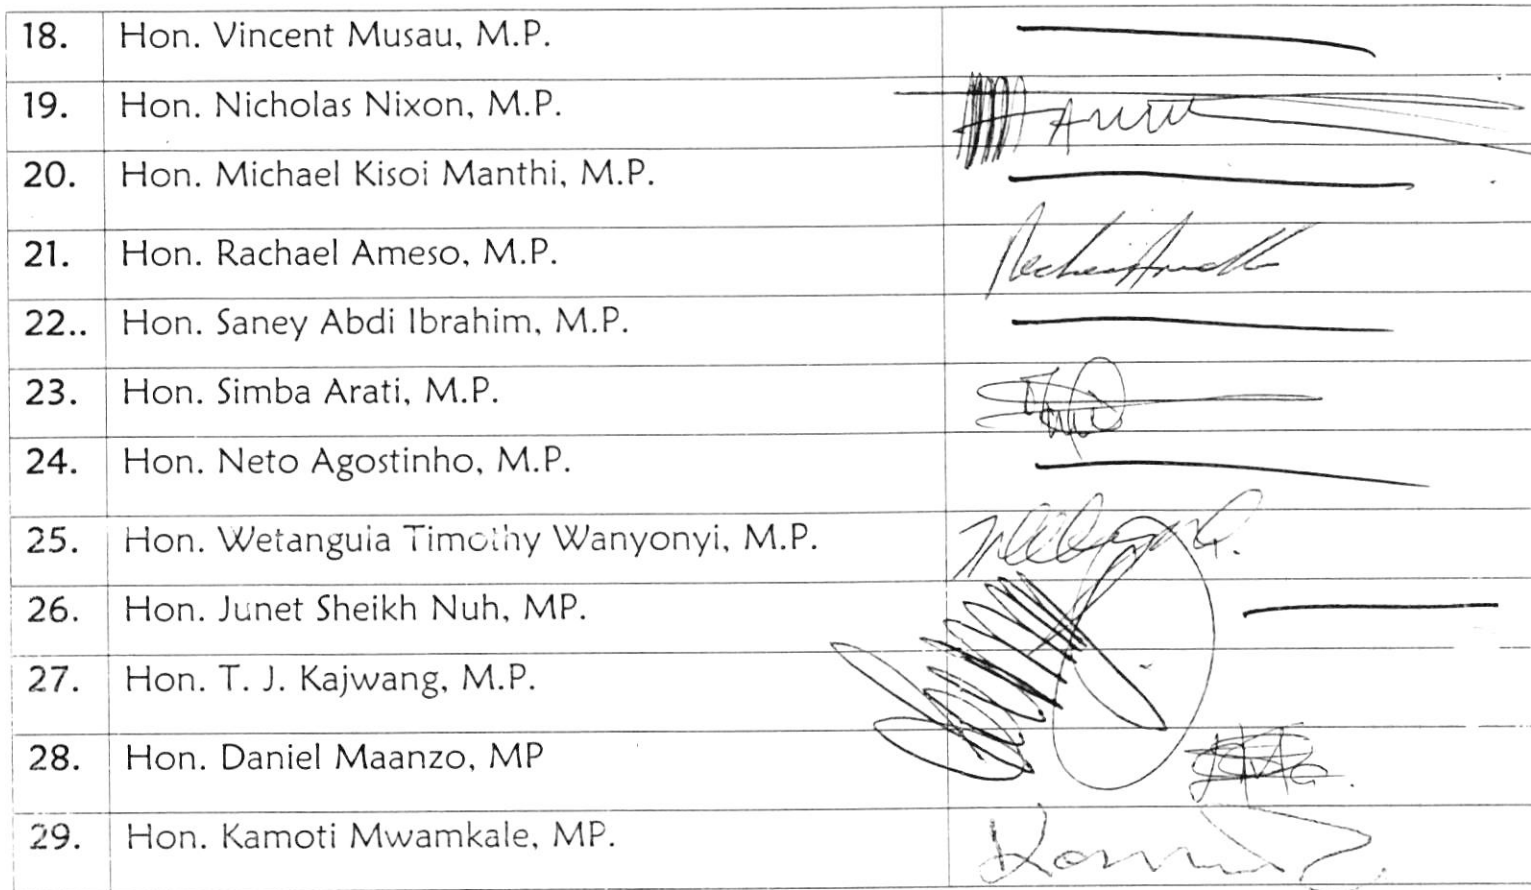 18. Hon. Vincent Musau, M.P.
19. Hon. Nicholas Nixon, M.P.
20. Hon. Michael Kisoi Manthi, M.P.
21. Hon. Rachael Ameso, M.P.
22.. Hon. Saney Abdi Ibrahim, M.P.
23. Hon. Simba Arati, M.P.
24. Hon. Neto Agostinho, M.P.
25. Hon. Wetanguia Timothy Wanyonyi, M.P.
26. Hon. Junet Sheikh Nuh, MP.
27. Hon. T. J. Kajwang, M.P.
28. Hon. Daniel Maanzo, MP
29. Hon. Kamoti Mwamkale, MP.